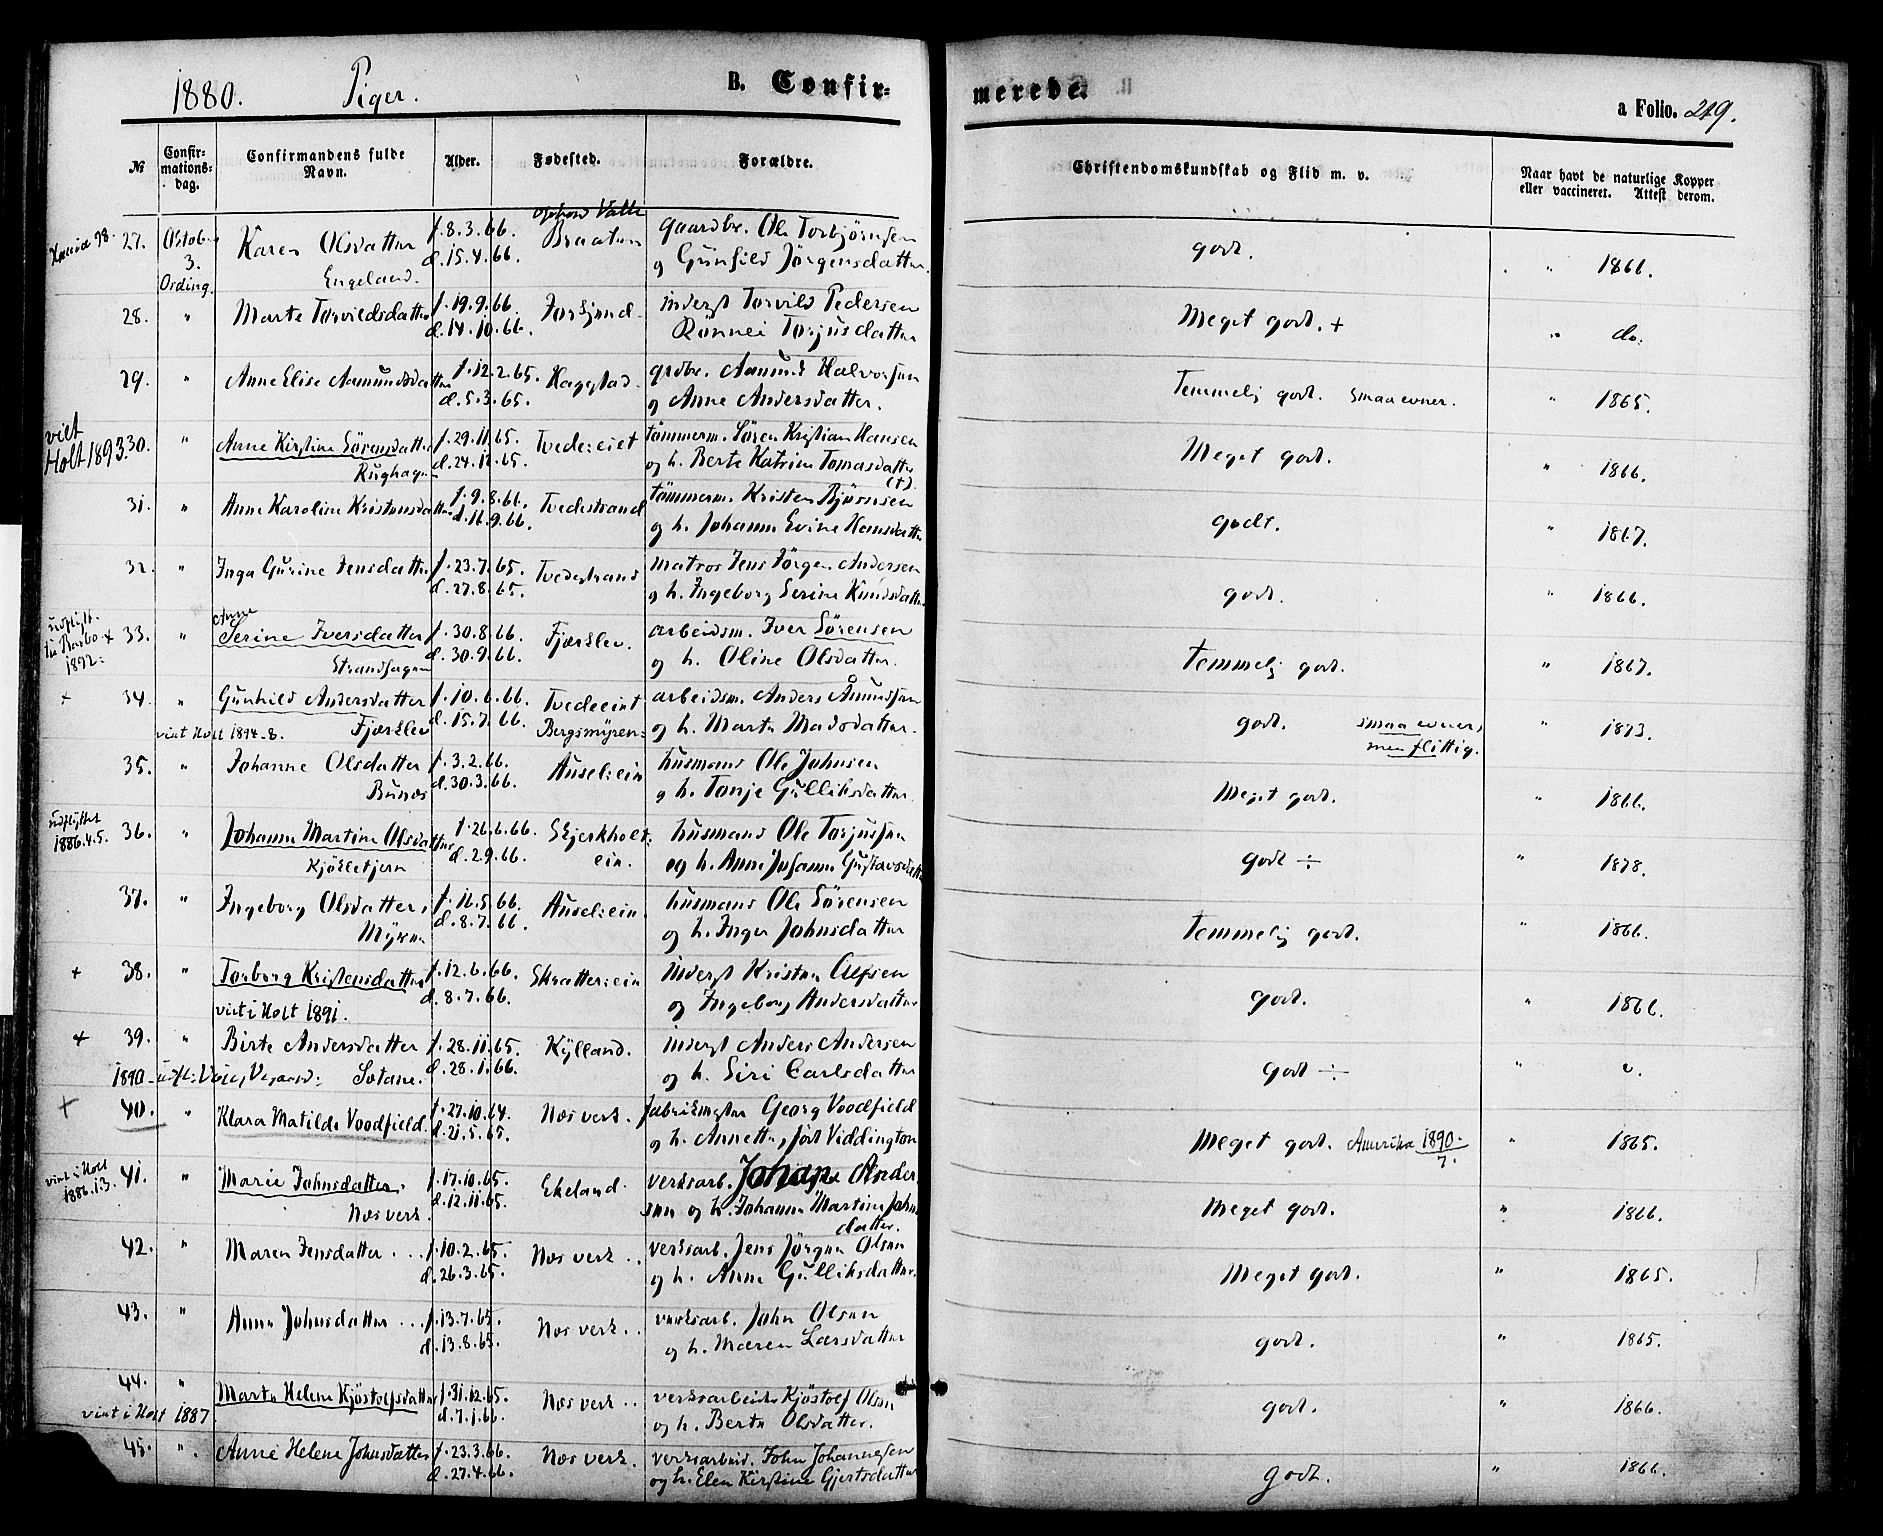 1880. Piger. B. Confir=
merede. a Folio. 219.
№ Confir-mations-dag. Confirmandens fulde Navn. Alder. Fødested. Forældre.
Christendomskundskab og Flid m. v. Naar havt de naturlige Kopper eller vaccineret. Attest derom.
27. Oktob. 3. Karen Olsdatter f. 8.3.66. Valle Braaten gaardbr. Ole Torbjörnsen godt. " 1866.
Ording. Engeland. d. 15.4.66. og Gunhild Jörgensdatter.
28. " Marte Torvildsdatter f. 19.9.66. inderst Torvild Pedersen Meget godt. + " do.
d. 14.10.66. Rönnei Torjusdatter
29. " Anne Elise Aamundsdatter f. 12.2.65. Haggstad grdbr. Aamund Halvorsen Temmelig godt. smaa evner. " 1865.
d. 5.3.65. og Anne Andersdatter.
Holt 1893. 30. " Anne Kirstine Sörensdatter f. 29.11.65. Tvede:eiet tömmerm. Sören Kristian Hansen Meget godt. " 1866.
Rughagen d. 24.12.65. og h. Berte Katrine Tomasdatter (+)
31. " Anne Karoline Kristensdatter f. 9.8.66. Tvedestrand tömmerm. Kristen Björnsen godt. " 1867.
d. 16.9.66. og h. Johanne Evine Hansdatter
32. " Inga Gurine Jensdatter f. 23.7.65. Tvedestrand matros Jens Jörgen Andersen godt. " 1866.
d. 27.8.65. og h. Ingeborg Serine Knudsdatter
udflytt. til Barbo + 1892. 33. " Anne Serine Iversdatter f. 30.8.66. Fjærklev. arbeidsm. Iver Sörensen temmelig godt. " 1867.
Strandhagen d. 30.9.66. og h. Oline Olsdatter.
+ 34. " Gunhild Andersdatter f. 10.6.66. Tvedeeiet arbeidsm. Anders Åmundsen godt. smaa evner, " 1873.
viet Holt 1894.8. Fjærklev d. 15.7.66. Bergsmyren: og h. Marte Madsdatter. men flittig.
35. " Johanne Olsdatter f. 3.2.66. Ausel:ein husmand Ole Johnsen Meget godt. " 1866.
Bunæs d. 30.3.66. og h. Tonje Gulliksdatter
udflyttet 1886.4.5. 36. " Johanne Martine Olsdatter f. 26.6.66. Skjerkholt: husmand Ole Torjussen godt ÷ " 1878.
Kjökletjern d. 2.9.66. ein. og h. Anne Johanne Gustavsdatter
37. " Ingeborg Olsdatter, f. 16.5.66. Ausel:ein. husmand Ole Sörensen Temmelig godt. " 1866.
Myren d. 8.7.66. og h. Inger Johnsdatter
+ 38. " Torborg Kristensdatter f. 12.6.66. Skratter:ein inderst Kristen Alfsen godt. " 1866.
viet i Holt 1891. d. 8.7.66. og Ingeborg Andersdatter
+ 39. " Birte Andersdatter f. 28.11.65. Kylland. inderst Anders Andersen godt ÷ " v.
1890 Sotane. d. 28.1.66. og h. Siri Carlsdatter
+ 40. " Klara Matilde Voodfield. f. 27.10.64. Næs verk. fabrikmester Georg Voodfield Meget godt. Amerika 1890. 7. " 1865.
d. 21.5.65. og h. Annette, född Viddington
viet i Holt 1886.1.3. 41. " Marie Johnsdatter. f. 17.10.65. Ekeland. verksarb. Johan Ander Meget godt. " 1866.
Næs verk. d. 12.11.65. sen og h. Johanne Martine Johnsdatter.
42. " Maren Jensdatter ... f. 10.2.65. Næs verk .. verksarb. Jens Jörgen Olsen Meget godt. " 1865.
d. 26.3.65. og h. Anne Gulliksdatter.
43. " Anne Johnsdatter ... f. 13.7.65. Næs verk .. verksarb. John Olsen godt. " 1865.
d. 13.8.65. og h. Maren Larsdatter
44. " Marte Helene Kjöstolfsdatter f. 31.12.65. Næs verk .. verksarbeider Kjöstolf Olsen godt. " 1866.
viet i Holt 1887. d. 7.1.66. og h. Berte Olsdatter.
45. " Anne Helene Johnsdatter f. 23.3.66. Næs verk. verksarbeid. John Johannesen Godt. " 1866.
d. 27.4.66. og h. Elen Kirstine Gjertsdatter